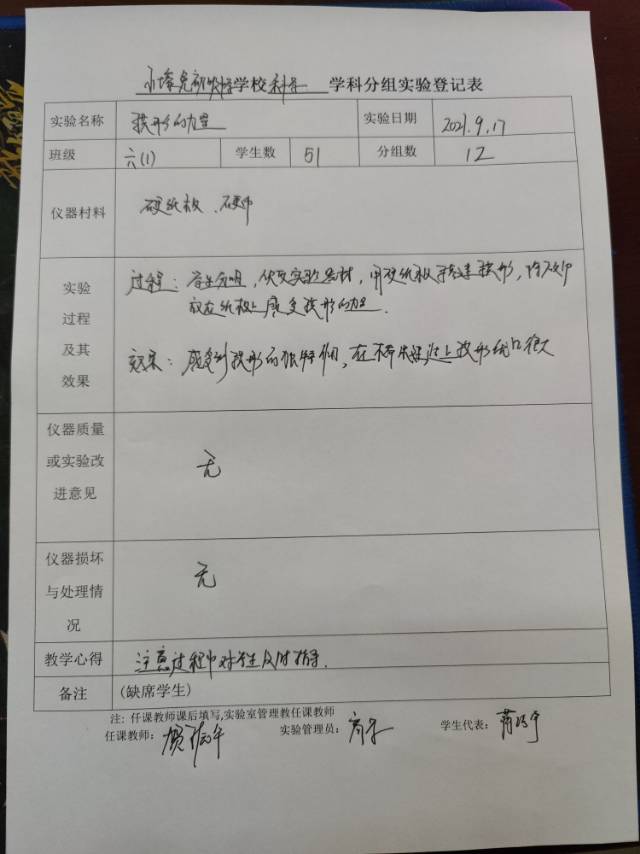 学校科学 学科分组实验登记表
实验名称 拱形的力量 实验日期 2021.9.17
班级 六(1) 学生数 51 分组数 12
仪器材料 硬纸板、硬币
实验过程及其效果
过程：学生分组，使用硬纸板搭建拱形，
放在纸板上感受拱形的力量.
效果：感受到拱形的独特作用，在桥梁建造上拱形
仪器质量
或实验改
进意见
无
仪器损坏
与处理情
况
无
教学心得 注意过程中对学生及时指导.
备注 (缺席学生)
注: 任课教师课后填写,实验室管理教任课教师
任课教师： 实验管理员： 学生代表：